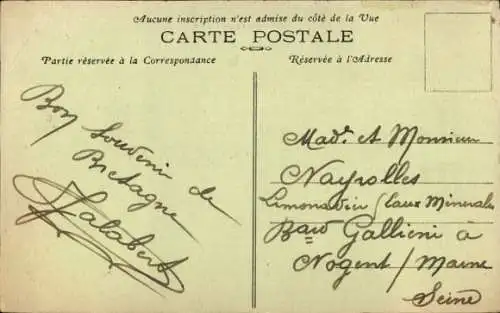 Aucune inscription n'est admise du côté de la Vue
CARTE POSTALE
Partie réservée à la Correspondance
Réservée à l'Adresse
Bon Souvenir de
Bretagne
Jalabert
Made et Monsieur
Nayrolles
Limonadier / Eaux Minerales
Bard Gallieni à
Nogent / Marne
Seine